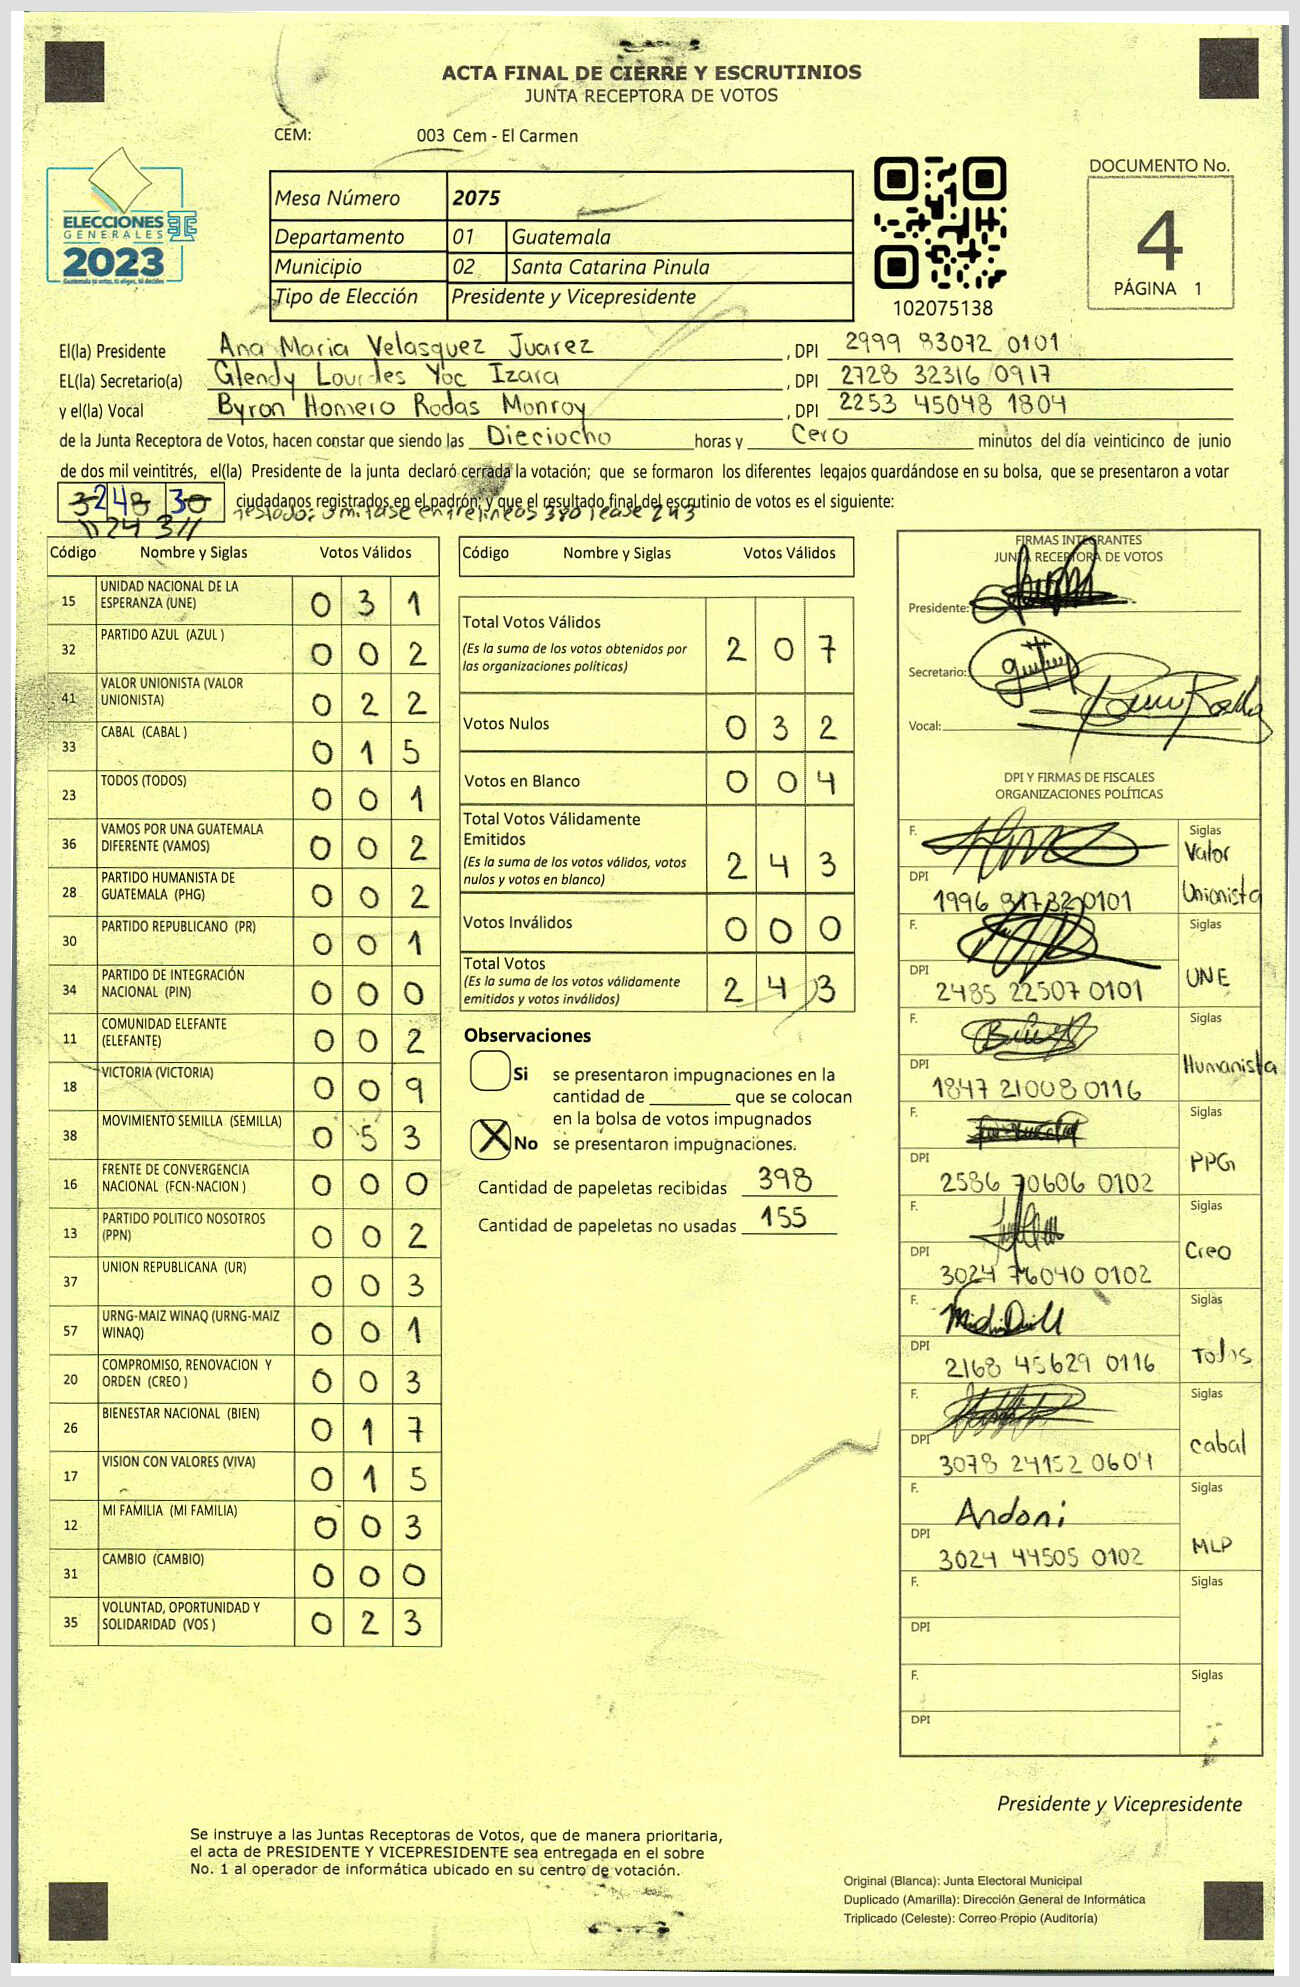 ACTA FINAL DE CIERRE Y ESCRUTINIOS
JUNTA RECEPTORA DE VOTOS
CEM: 003 Cem - El Carmen
ELECCIONES
GENERALES
2023
Mesa Número 2075
Departamento 01 Guatemala
Municipio 02 Santa Catarina Pinula
Tipo de Elección Presidente y Vicepresidente
102075138
DOCUMENTO No.
4
PÁGINA 1
El(la) Presidente Ana Maria Velasquez Juarez, DPI 2999 83072 0101
EL(la) Secretario(a) Glendy Lourdes Yoc Izara, DPI 2728 32316 0917
y el(la) Vocal Byron Homero Rodas Monroy, DPI 2253 45048 1804
de la Junta Receptora de Votos, hacen constar que siendo las Dieciocho horas y Cero minutos del día veinticinco de junio
de dos mil veintitrés, el(la) Presidente de la junta declaró cerrada la votación; que se formaron los diferentes legajos quardándose en su bolsa, que se presentaron a votar
ciudadanos registrados en el padrón; y que el resultado final del escrutinio de votos es el siguiente:
243
Código Nombre y Siglas Votos Válidos
15 UNIDAD NACIONAL DE LA ESPERANZA (UNE) 0 3 1
32 PARTIDO AZUL (AZUL ) 0 0 2
41 VALOR UNIONISTA (VALOR UNIONISTA) 0 2 2
33 CABAL (CABAL ) 0 1 5
23 TODOS (TODOS) 0 0 1
36 VAMOS POR UNA GUATEMALA DIFERENTE (VAMOS) 0 0 2
28 PARTIDO HUMANISTA DE GUATEMALA (PHG) 0 0 2
30 PARTIDO REPUBLICANO (PR) 0 0 1
34 PARTIDO DE INTEGRACIÓN NACIONAL (PIN) 0 0 0
11 COMUNIDAD ELEFANTE (ELEFANTE) 0 0 2
18 VICTORIA (VICTORIA) 0 0 9
38 MOVIMIENTO SEMILLA (SEMILLA) 0 5 3
16 FRENTE DE CONVERGENCIA NACIONAL (FCN-NACION ) 0 0 0
13 PARTIDO POLITICO NOSOTROS (PPN) 0 0 2
37 UNION REPUBLICANA (UR) 0 0 3
57 URNG-MAIZ WINAQ (URNG-MAIZ WINAQ) 0 0 1
20 COMPROMISO, RENOVACION Y ORDEN (CREO ) 0 0 3
26 BIENESTAR NACIONAL (BIEN) 0 1 7
17 VISION CON VALORES (VIVA) 0 1 5
12 MI FAMILIA (MI FAMILIA) 0 0 3
31 CAMBIO (CAMBIO) 0 0 0
35 VOLUNTAD, OPORTUNIDAD Y SOLIDARIDAD (VOS ) 0 2 3
Código Nombre y Siglas Votos Válidos
Total Votos Válidos 2 0 7
(Es la suma de los votos obtenidos por
las organizaciones políticas)
Votos Nulos 0 3 2
Votos en Blanco 0 0 4
Total Votos Válidamente
Emitidos 2 4 3
(Es la suma de los votos válidos, votos
nulos y votos en blanco)
Votos Inválidos 0 0 0
Total Votos 2 4 3
(Es la suma de los votos válidamente
emitidos y votos inválidos)
Observaciones
Si se presentaron impugnaciones en la
cantidad de ________ que se colocan
en la bolsa de votos impugnados
X No se presentaron impugnaciones.
Cantidad de papeletas recibidas 398
Cantidad de papeletas no usadas 155
FIRMAS INTEGRANTES
JUNTA RECEPTORA DE VOTOS
Presidente:
Secretario:
Vocal:
DPI Y FIRMAS DE FISCALES
ORGANIZACIONES POLÍTICAS
F. Siglas Valor Unionista
DPI 1996 81732 0101
F. Siglas UNE
DPI 2485 22507 0101
F. Siglas Humanista
DPI 1847 21008 0116
F. Siglas PPG
DPI 2586 70606 0102
F. Siglas Creo
DPI 3024 76040 0102
F. Siglas Todos
DPI 2168 45629 0116
F. Siglas Cabal
DPI 3078 24152 0604
F. Andoni Siglas MLP
DPI 3024 44505 0102
F. Siglas
DPI
F. Siglas
DPI
Presidente y Vicepresidente
Se instruye a las Juntas Receptoras de Votos, que de manera prioritaria,
el acta de PRESIDENTE Y VICEPRESIDENTE sea entregada en el sobre
No. 1 al operador de informática ubicado en su centro de votación.
Original (Blanca): Junta Electoral Municipal
Duplicado (Amarilla): Dirección General de Informática
Triplicado (Celeste): Correo Propio (Auditoría)